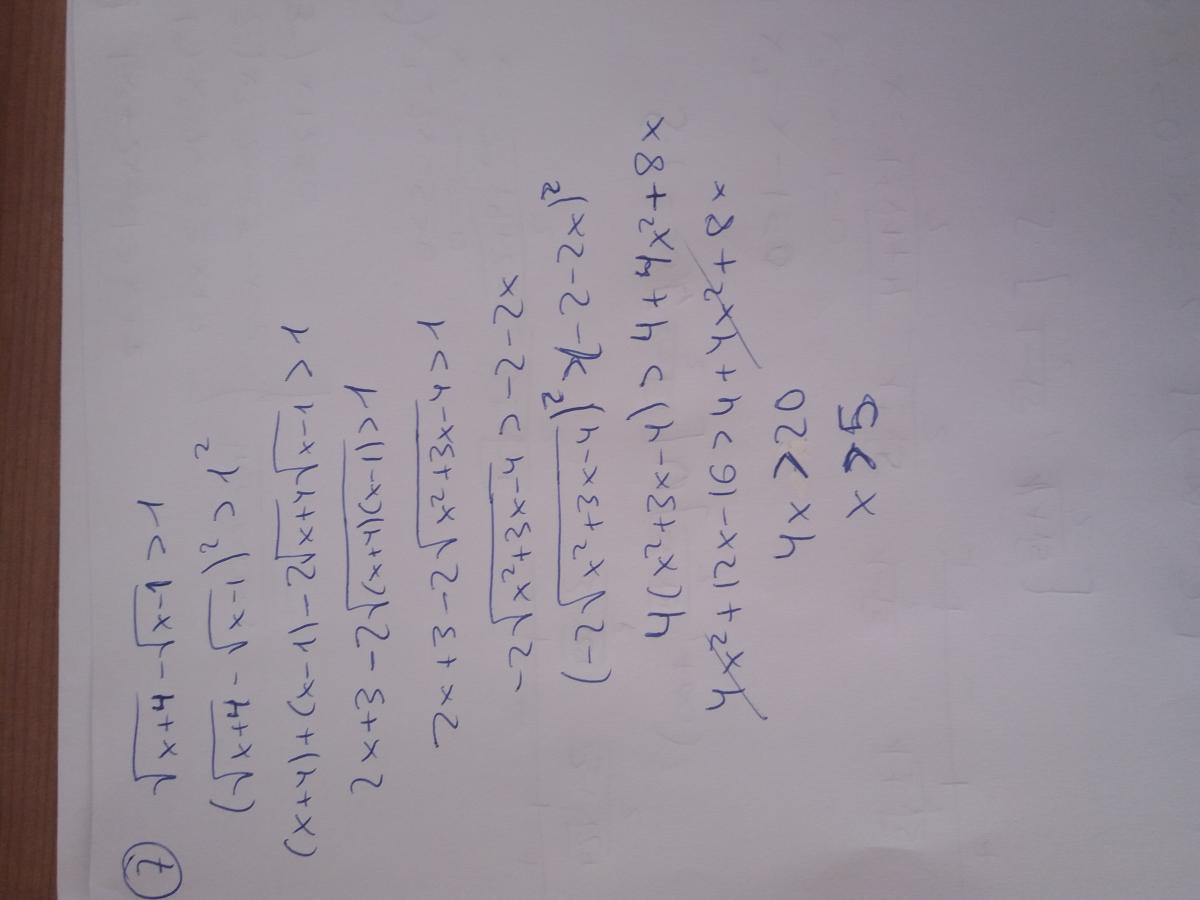 ⑦ √(x+4) - √(x-1) > 1
(√(x+4) - √(x-1))² > 1²
(x+4)+(x-1)-2√(x+4)√(x-1) > 1
2x+3-2√((x+4)(x-1)) > 1
2x+3-2√(x²+3x-4) > 1
-2√(x²+3x-4) > -2-2x
(-2√(x²+3x-4))² > (-2-2x)²
4(x²+3x-4) > 4+4x²+8x
4x²+12x-16 > 4+4x²+8x
4x > 20
x > 5